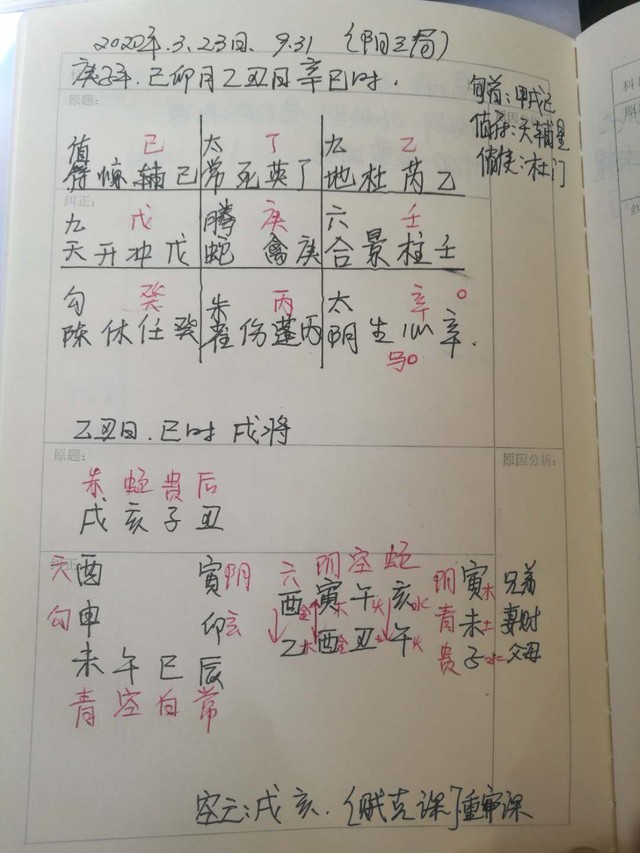 2020年.3.23日、9.31 (阳三局)
庚子年.己卯月乙丑日辛巳时.
旬首:甲戌己
值符:天辅星
值使:杜门
原题:
值 己 太 丁 九 乙
符惊辅己 常死英丁 地杜芮乙
纠正:
九 戊 螣 庚 六 壬
天开冲戊 蛇禽庚 合景柱壬
勾 癸 朱 丙 太 辛 o
陈休任癸 雀伤蓬丙 阴生心辛.
马o
乙丑日.巳时 戌将
原题:
原因分析:
朱蛇贵后
戌亥子丑
天酉 寅阴 六阴空蛇 阴寅木兄弟
勾申 卯玄 酉金寅木午火亥水 青未土妻财
未午巳辰 乙木酉金丑土午火 贵子水父母
青空白常
空亡:戌亥.[贼克课]重审课